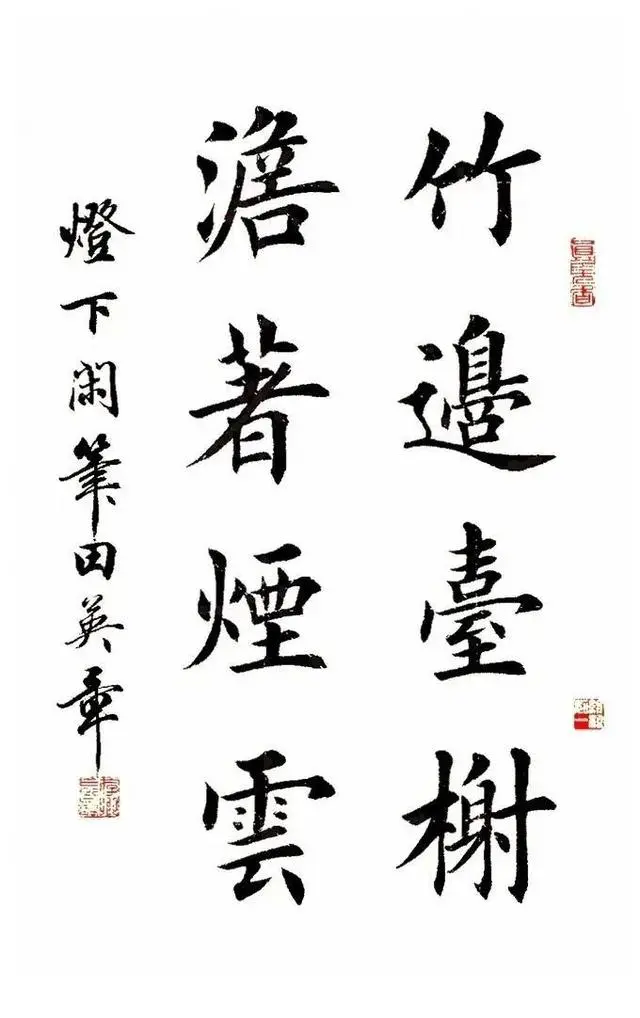 竹邉臺榭
澹著煙雲
燈下閑筆田英章